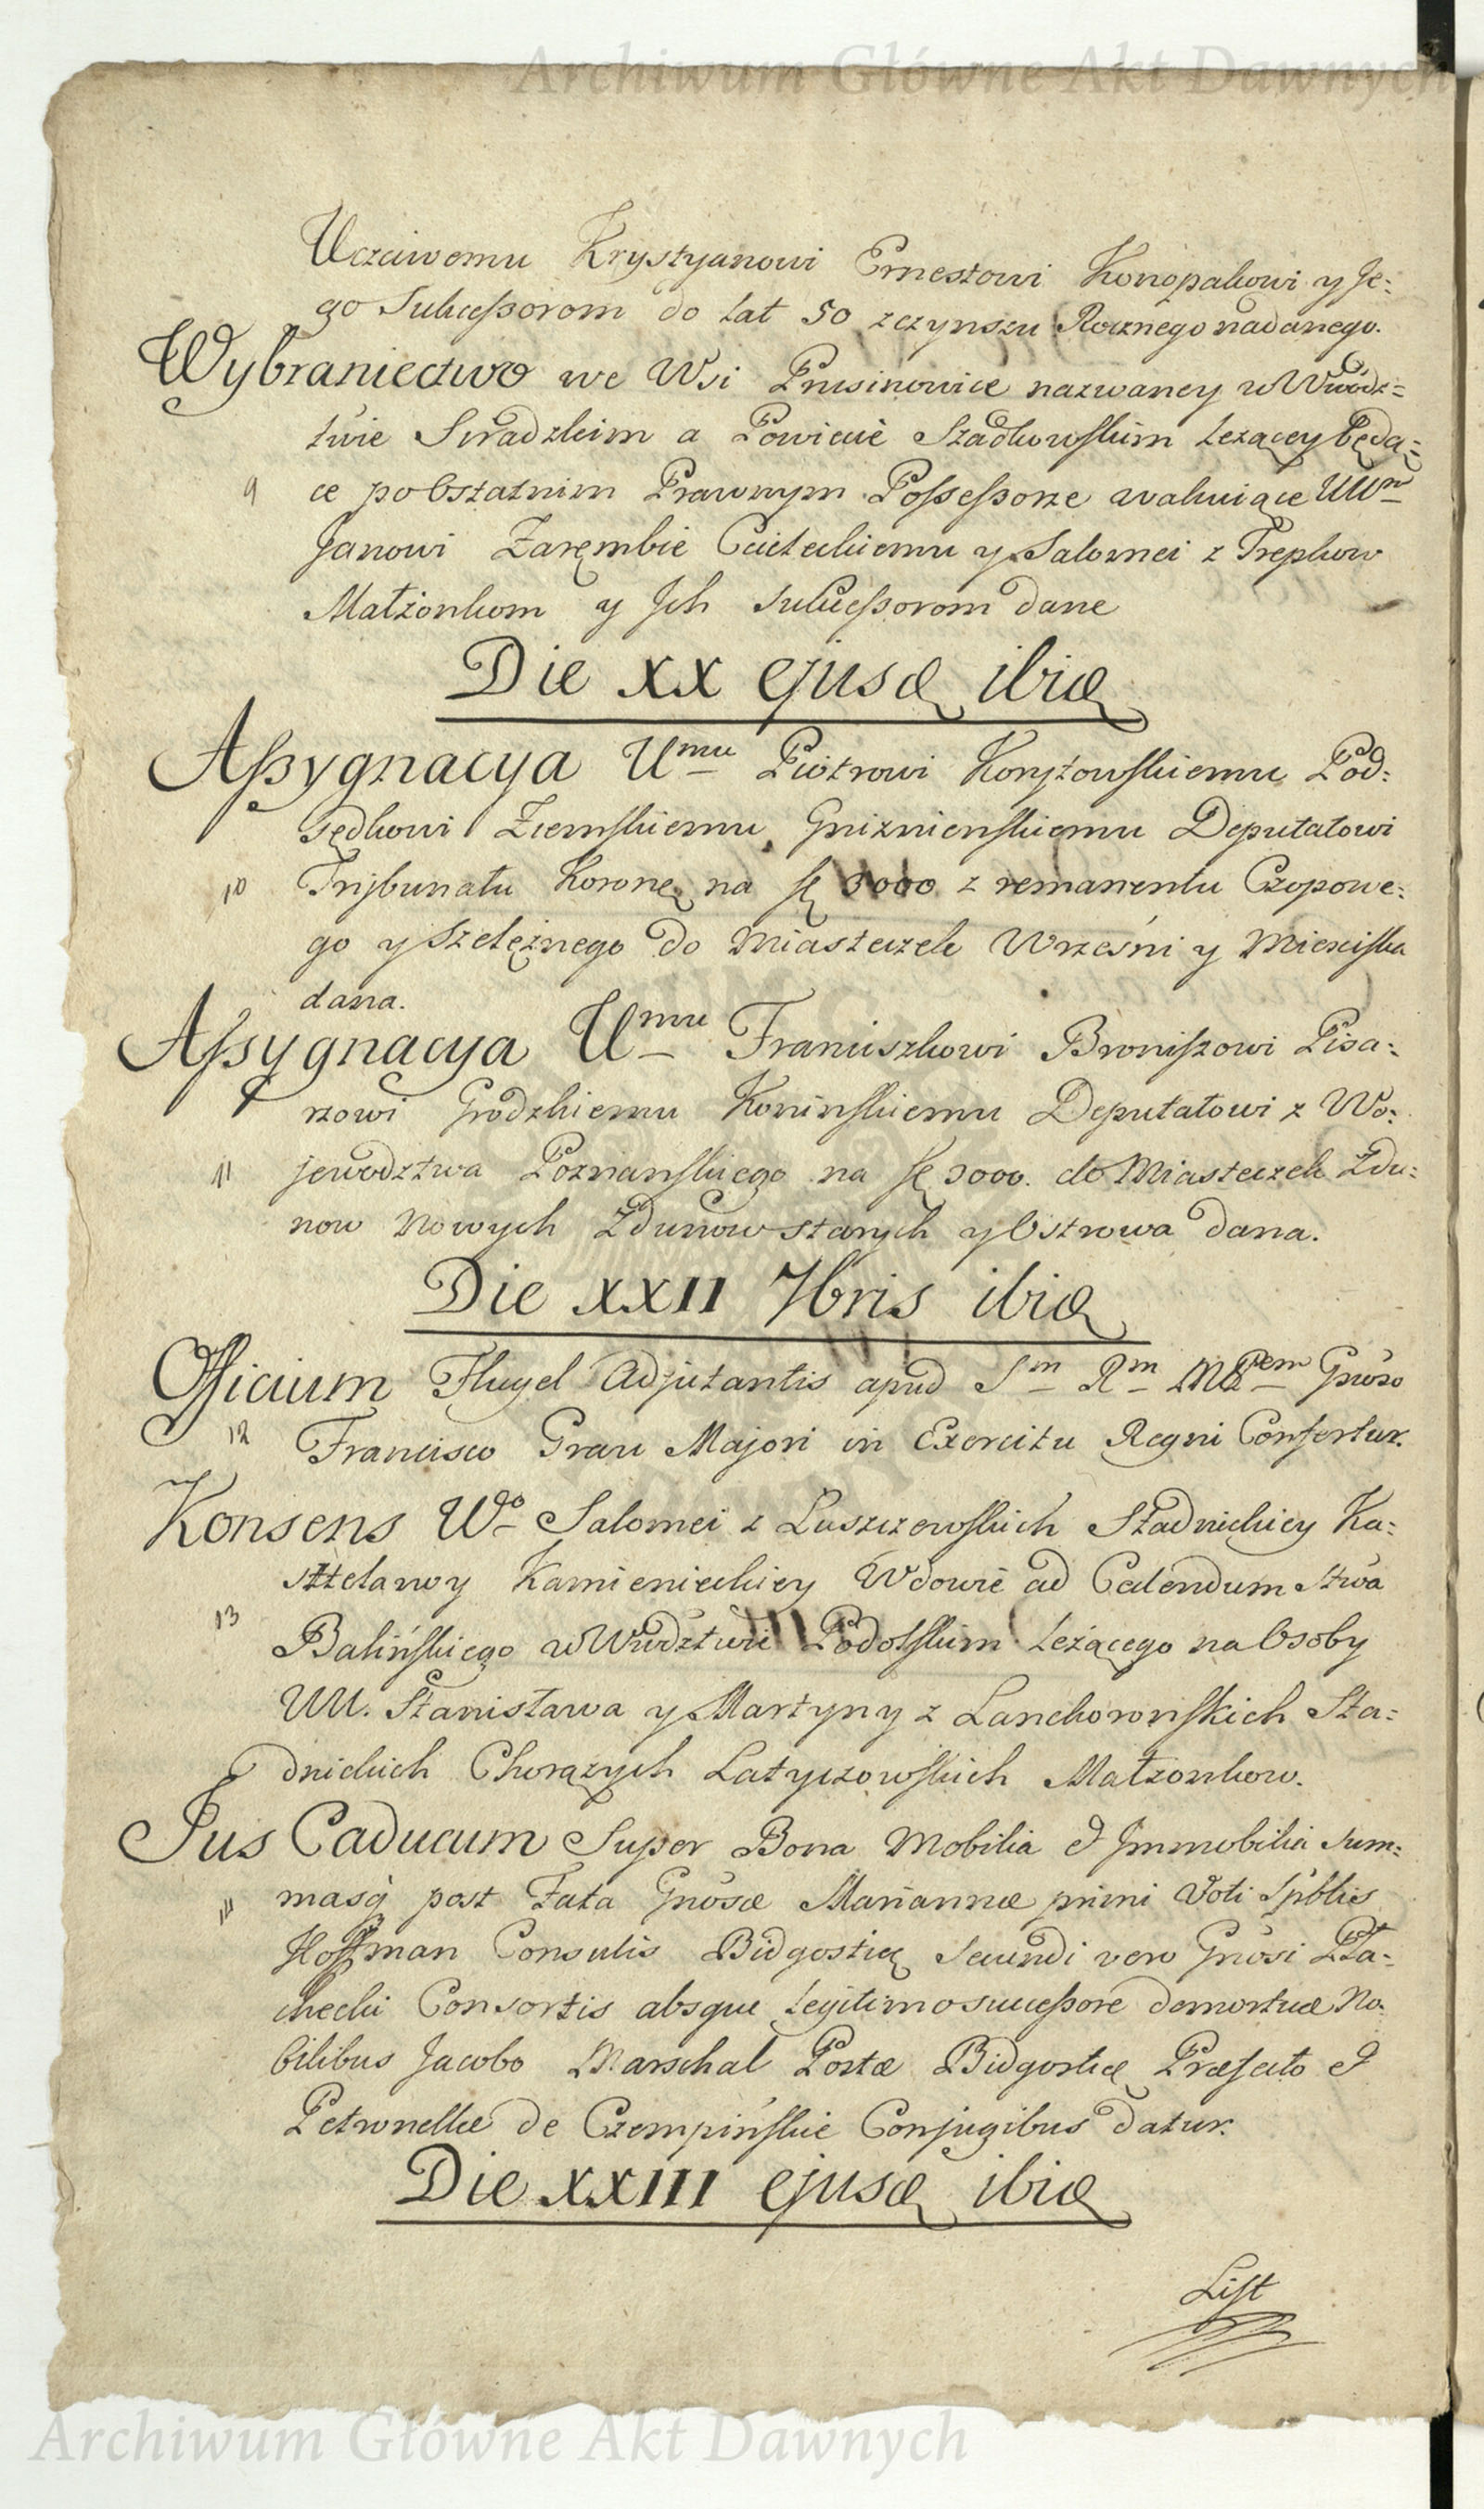 Archiwum Główne Akt Dawnych
Uczciwemu Krystyanowi Ernestowi Konopakowi y Je:
go Sukceßorom do Lat 50 z czynszu Rocznego nadanego.
Wybraniectwo we Wsi Prusinowice nazwaney w Wwódz=
twie Siradzkim a Powiecie Szadkowskim Leżącey Będą=
9 ce po Ostatnim Prawnym Poßeßorze wakuiące UUm
Janowi Zarembie Cieleckiemu y Salomei z Trepkow
Małżonkom y Jch Sukceßorom dane
Die XX ejusd ibid
Aßygnacya Umu Piotrowi Korytowskiemu Pod:
sędkowi Ziemskiemu Gnieźnienskiemu Deputatowi
10 Trybunału Koronę na fl 3000 z remanentu Czopowe:
go y Szelężnego do Miasteczek Wrześni y Mieściska
dana.
Aßygnacya Umu Franciszkowi Broniszowi Pisa:
rzowi Grodzkiemu Koninskiemu Deputatowi z Wo:
11 jewodztwa Poznanskiego na fl 3000. do Miasteczek Zdu:
now Nowych Zdunow starych y Ostrowa dana.
Die XXII 7bris ibid
Officium Flugel Adjutantis apud Sm Rm MPem Gnoso
12 Francisco Grau Majori in Exercitu Regni Confertur.
Konsens Wo Salomei z Luszczewskich Stadnickiey Ka:
sztelanoy Kamienieckiey Wdowie ad Cedendum Stwa
13 Balińskiego w Wwdztwie Podolskim Leżącego na Osoby
UU. Stanisława y Martyny z Lanckoronskich Sta:
dnickich Chorążych Latyczowskich Małżonkow.
Jus Caducum Super Bona Mobilia & Jmmobilia Sum:
masq post Fata Gnosæ Mariannæ primi Voti Spblis
Hoffman Consulis Bidgostię Secundi vero Gnosi Pła:
checki Consortis absque Legitimo succeßore demortuæ No:
bilibus Jacobo Marschal Postæ Bidgostię Præfecto &
Petronellæ de Czempińskie Conjugibus datur.
Die XXIII ejusd ibid
List
Archiwum Główne Akt Dawnych